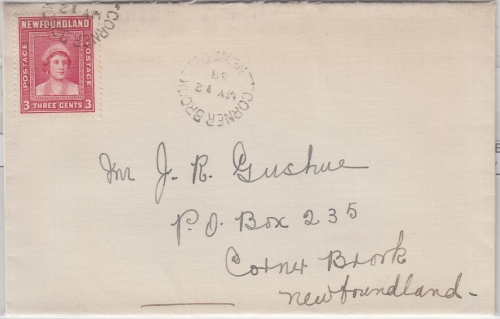 NEWFOUNDLAND
POSTAGE
POSTAGE
3 THREE CENTS 3
CORNER BROOK
MY 12
38
Mr J. R. Gushue
P.O. Box 235
Corner Brook
Newfoundland-